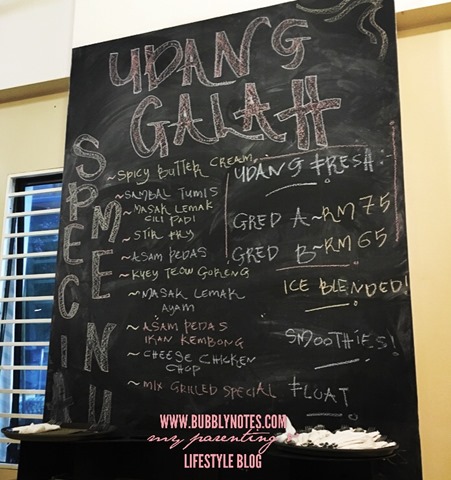 UDANG
GALAH
SPECIAL
MENU
~SPICY BUTTER CREAM
~SAMBAL TUMIS
~MASAK LEMAK
CILI PADI
~STIR FRY
~ASAM PEDAS
~KUEY TEOW GORENG
~MASAK LEMAK
AYAM
~ASAM PEDAS
IKAN KEMBONG
~CHEESE CHICKEN
CHOP
~MIX GRILLED SPECIAL
UDANG FRESH:-
GRED A~RM75
GRED B~RM65
ICE BLENDED!
SMOOTHIES!
FLOAT
WWW.BUBBLYNOTES.COM
my parenting
LIFESTYLE BLOG